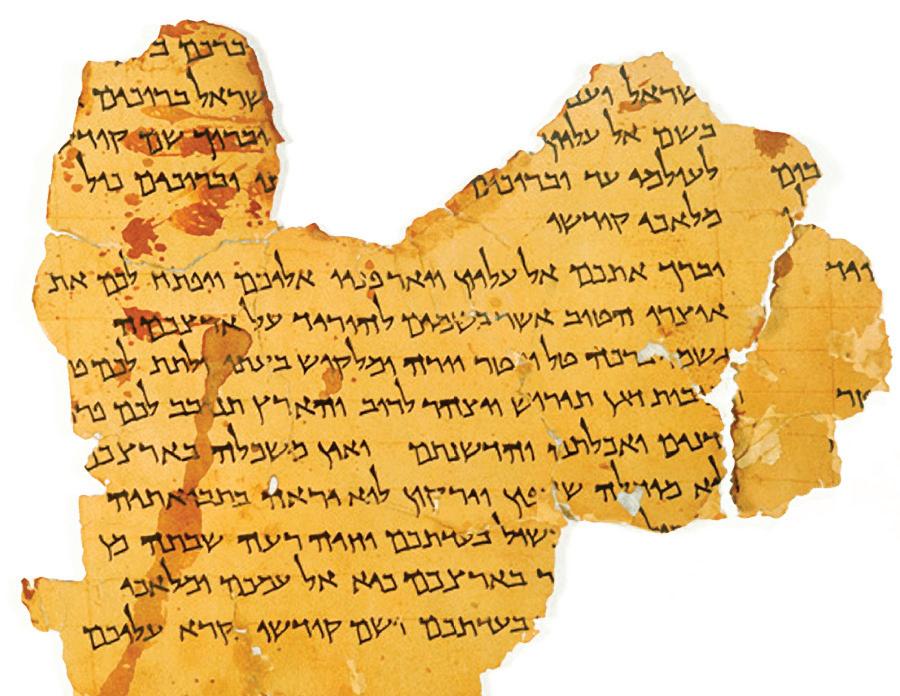 ברכם ב
שראל וענ שראל ברוכים
בשם אל עליון וברוך שם קודש
לעולמי עד וברוכים וברוכים כול
מלאכי קודשו
יברך אתכם אל עליון ויאר פניו אליכם ויפתח לכם את
אוצרו הטוב אשר בשמים להוריד על ארצכמה
גשמי ברכה טל ומטר יורה ומלקוש בעתו ולתת לכם פ
בות דגן תירוש ויצהר לרוב והארץ תנובב לכם פר
דנים ואכלתם והדשנתם ואין משכלה בארצכ
לא מוחלה שדפון וירקון לוא יראה בתבואתיה
שול בעדתכם וחיה רעה שבתה מן
ר בארצכם כיא אל עמכם ומלאכי
בעדתכם ושם קודשו נקרא עליכם